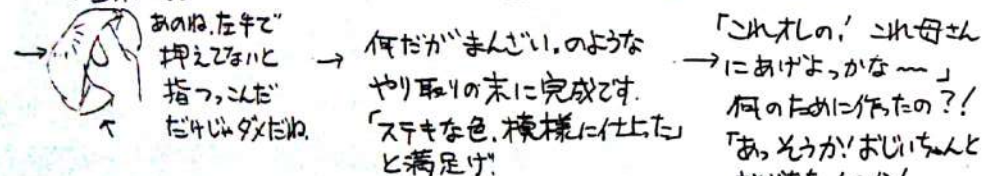 あのね、左手で
押えてないと
指つっこんだ
だけじゃダメだね。
→ 何だか"まんざい"のような
やり取りの末に完成です。
「ステキな色、模様に仕上った」
と満足げ。
→ 「これオレの! これ母さん
にあげよっかな〜」
何のために作ったの?!
「あっそうか! おじいちゃんと